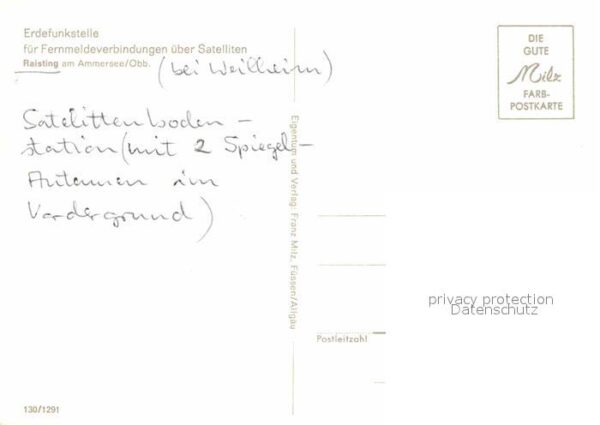 Erdefunkstelle
für Fernmeldeverbindungen über Satelliten
Raisting am Ammersee/Obb. (bei Weilheim)
Satelittenboden-
station (mit 2 Spiegel-
Antennen im
Vordergrund)
Eigentum und Verlag: Franz Milz, Füssen/Allgäu
DIE
GUTE
Milz
FARB-
POSTKARTE
privacy protection
Datenschutz
Postleitzahl
130/1291